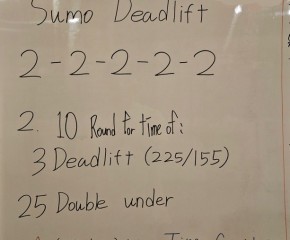 Sumo Deadlift
2-2-2-2-2
2. 10 Round for time of:
3 Deadlift (225/155)
25 Double under